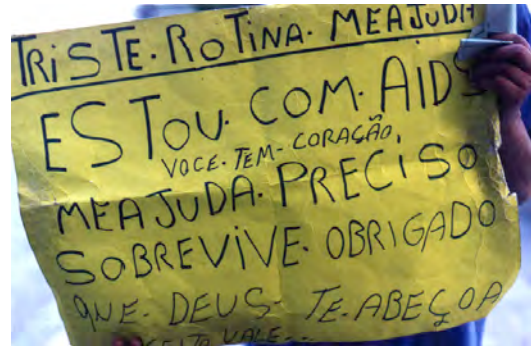 TRISTE. ROTINA. MEAJUDA
ESTOU. COM. AIDS
VOCE. TEM-CORAÇÃO,
MEAJUDA. PRECISO
SOBREVIVE. OBRIGADO
QUE. DEUS. TE. ABEÇOA
VALE...